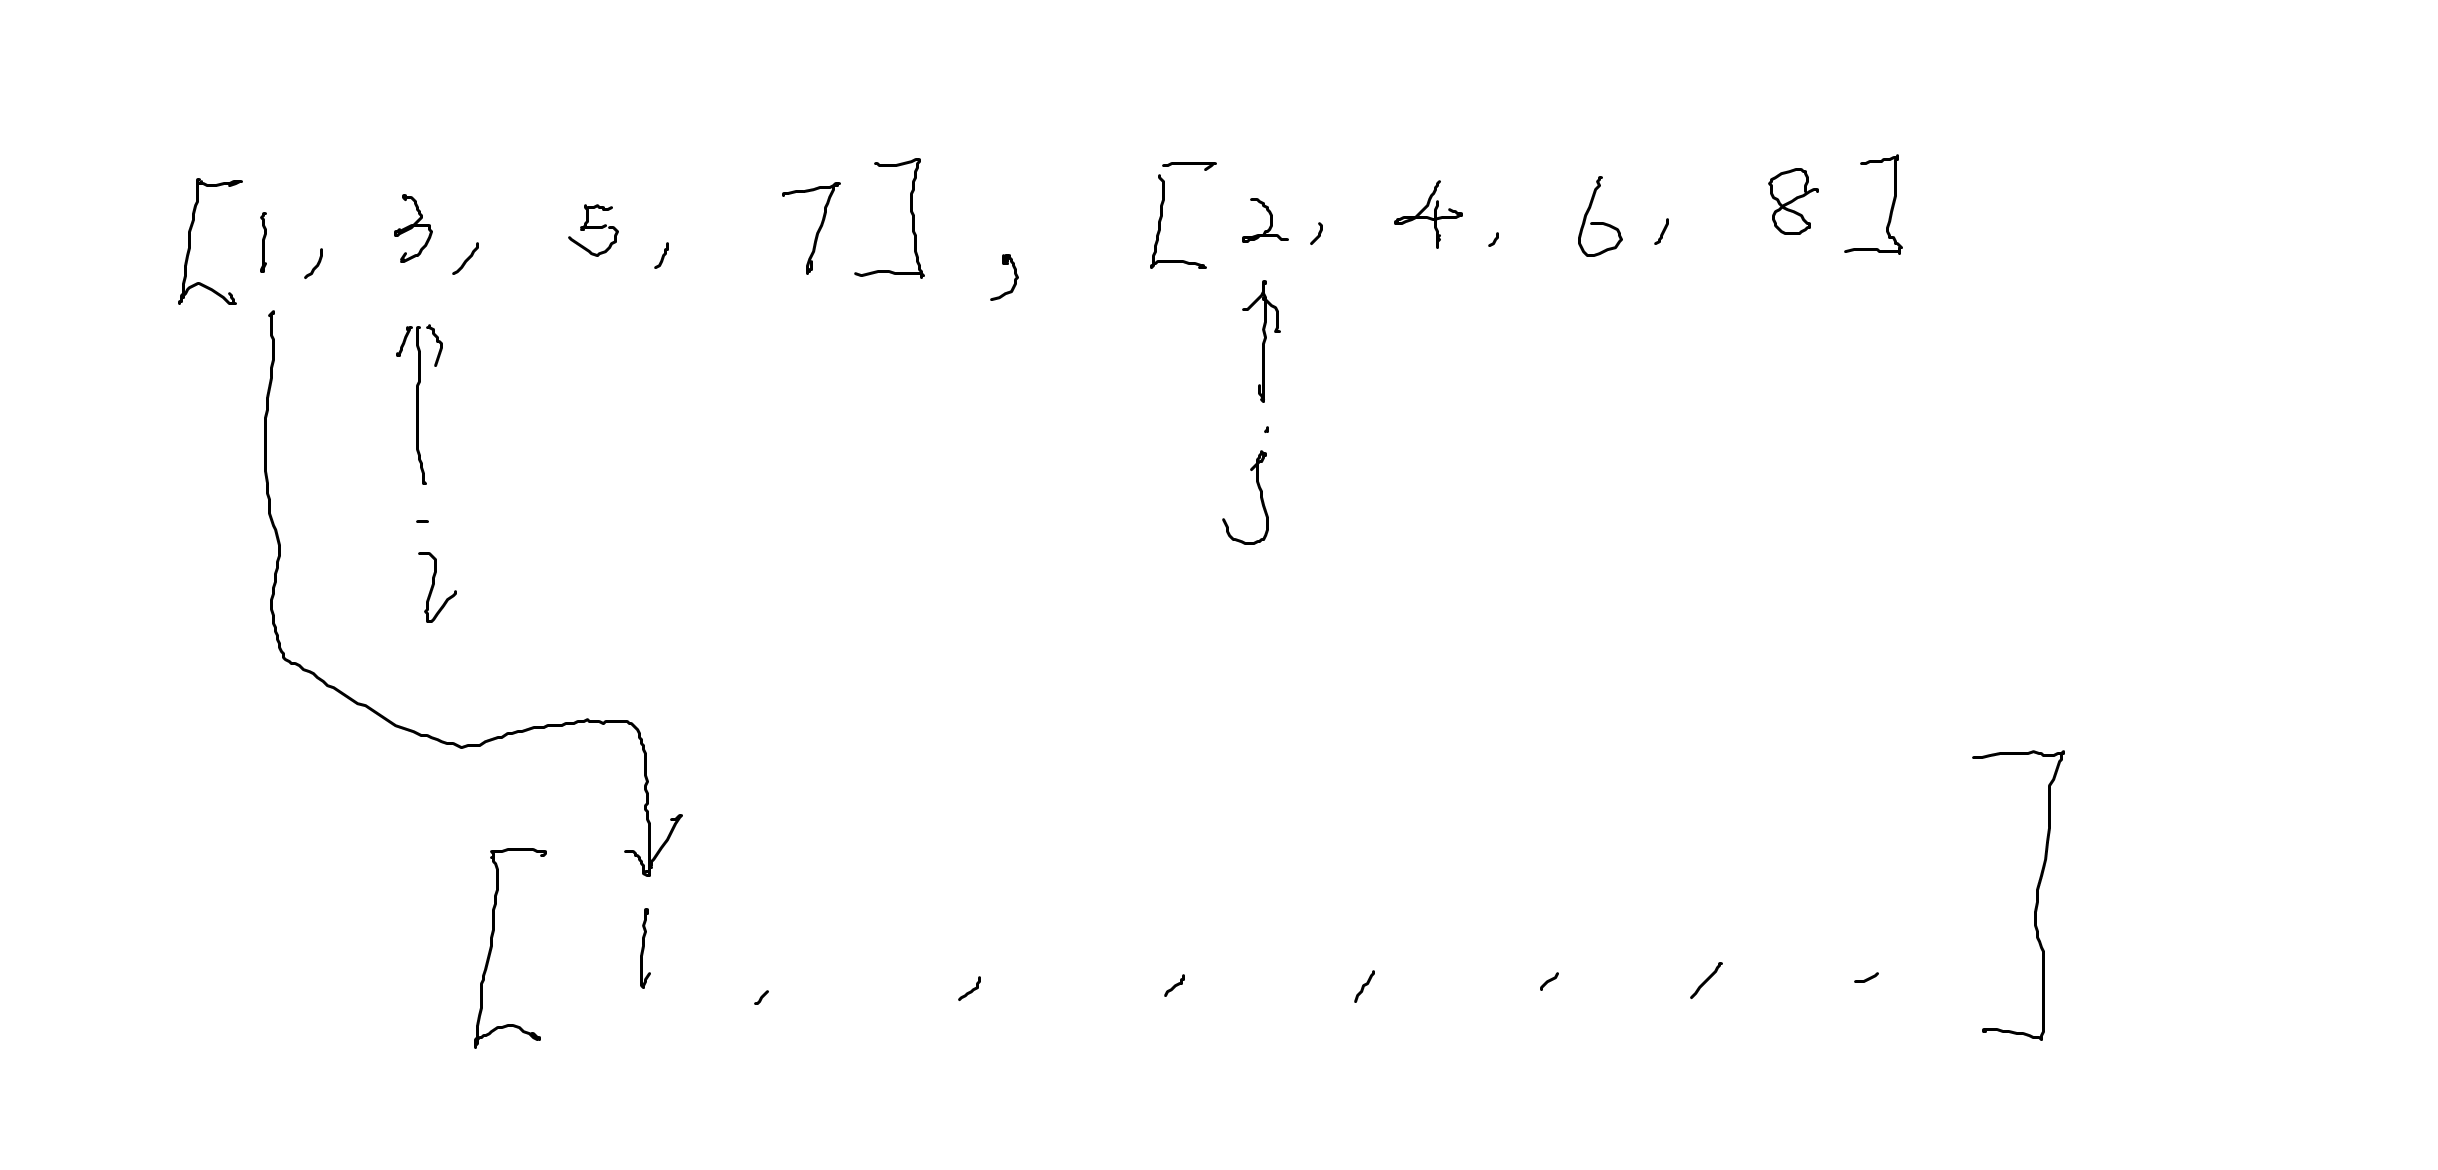 [1, 3, 5, 7], [2, 4, 6, 8]
i j
[1, , , , , , , ]